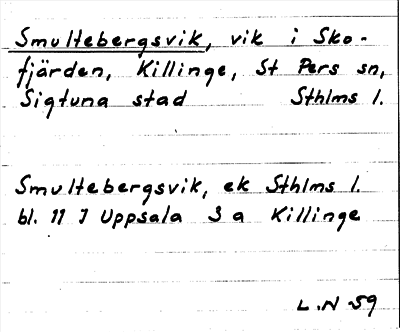 Smultebergsvik, vik i Sko-
fjärden, Killinge, St Pers sn,
Sigtuna stad Sthlms l.
Smultebergsvik, ek Sthlms l.
bl. 11 J Uppsala S a Killinge
L.N 59